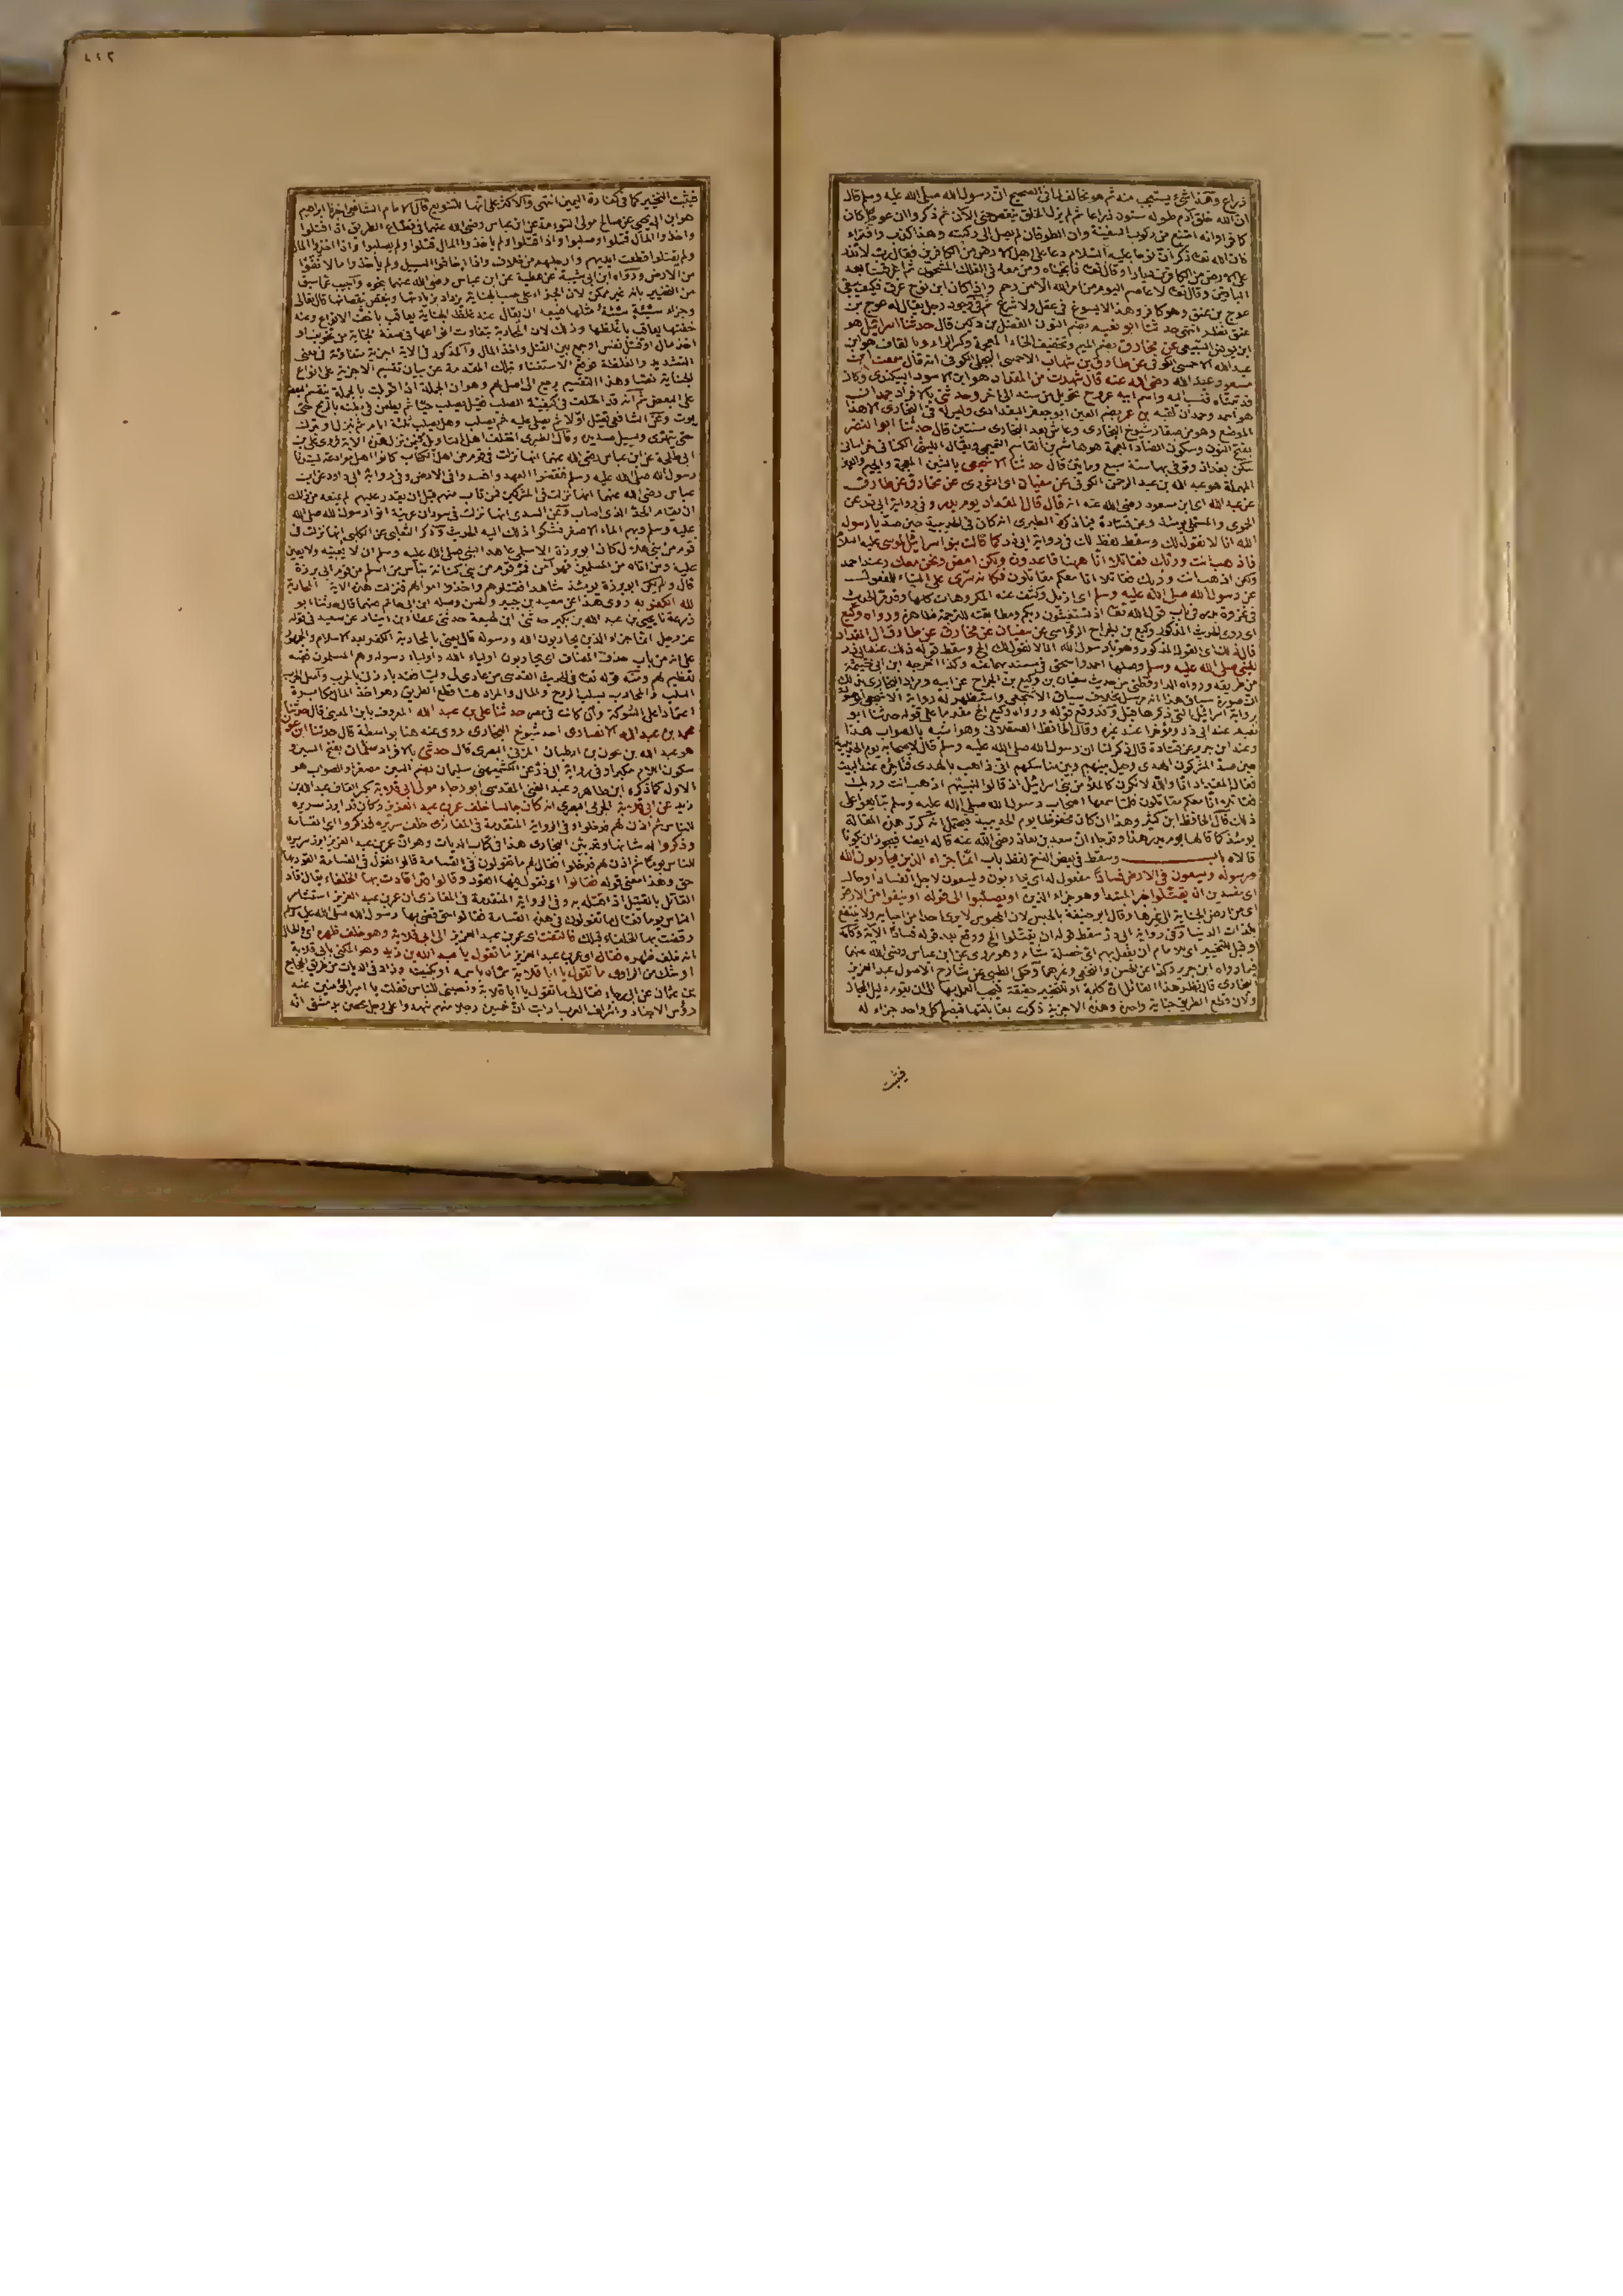 ذراع وهذا شئ يستحى منه ثم هو مخالف لما فى الصحيح ان رسول الله صلى الله عليه وسلم قال
ان الله خلق آدم طوله ستون ذراعا ثم لم يزل الخلق ينقص حتى الآن ثم ذكروا ان عوج كان
كافرا وانه امتنع من ركوب السفينة وان الطوفان لم يصل الى ركبته وهذا كذب وافتراء
فان الله تعالى ذكر ان نوحا عليه السلام دعا على اهل الارض من الكافرين فقال رب لا تذر
على الارض من الكافرين ديارا وقال تعالى فانجيناه ومن معه فى الفلك المشحون ثم اغرقنا بعد
الباقين وقال تعالى لا عاصم اليوم من امر الله الا من رحم واذا كان ابن نوح غرق فكيف يبقى
عوج بن عنق وهو كافر وهذا لا يسوغ فى عقل ولا شرع ثم فى وجود رجل يقال له عوج بن
عنق نظر انتهى حدثنا ابو نعيم بضم النون الفضل بن دكين قال حدثنا اسرائيل هو
ابن يونس السبيعى عن مخارق بضم الميم وتخفيف الخاء المعجمة وكسر الراء وبالقاف هو ابن
عبد الله الاحمسى الكوفى عن طارق بن شهاب الاحمسى البجلى الكوفى انه قال سمعت ابن
مسعود عبد الله رضى الله عنه قال شهدت من المقداد هو ابن الاسود
هو احمد وحمدان لقبه بن عمر بضم العين ابو جعفر البغدادى وليس له فى البخارى الا هذا
الموضع وهو من صغار شيوخ البخارى وعاش بعد البخارى سنتين قال حدثنا ابو النضر
بفتح النون وسكون الضاد المعجمة هو هاشم بن القاسم التميمى ويقال الليثى الكنانى خراسانى
سكن بغداد وتوفى بها سنة سبع ومايتين قال حدثنا الاشجعى بالشين المعجمة والجيم والعين
المهملة هو عبيد الله بن عبد الرحمن الكوفى عن سفيان اى الثورى عن مخارق عن طارق
عن عبد الله اى ابن مسعود رضى الله عنه انه قال قال المقداد يوم بدر وفى رواية ابى ذر عن
الحموى والمستملى يومئذ وعن قتادة فيما ذكره الطبرى انه كان فى الحديبية حين صد يا رسول
الله انا لا نقول لك وسقط لفظ لك فى رواية ابى ذر كما قالت بنو اسرائيل لموسى عليه السلام
فاذهب انت وربك فقاتلا انا ههنا قاعدون ولكن امض ونحن معك وعند احمد
ولكن اذهب انت وربك فقاتلا انا معكم مقاتلون فكانه سرى على البناء للمفعول
عن رسول الله صلى الله عليه وسلم اى ازيل وكشف عنه المكروهات كلها وقد مر الحديث
فى غزوة بدر فى باب قول الله تعالى اذ تستغيثون ربكم ومطابقته للترجمة ظاهرة ورواه وكيع
اى روى الحديث المذكور وكيع بن الجراح الرؤاسى عن سفيان عن مخارق عن طارق ان المقداد
قال ذلك اى القول المذكور وهو يا رسول الله انا لا نقول لك الخ وسقط قوله ذلك عند ابى ذر
للنبى صلى الله عليه وسلم وصلها احمد واسحق فى مسنديهما عنه وكذا اخرجه ابن ابى خيثمة
من طريقه ورواه الدارقطنى من حديث سفيان بن وكيع بن الجراح عن ابيه ومراد البخارى بذلك
ان صورة سياق هذا انه مرسل بخلاف سياق الاشجعى واستظهر له رواية الاشجعى الموصولة
رواية اسرائيل التى ذكرها قبل وقد وقع قوله ورواه وكيع الخ مقدما على قوله حدثنا ابو
نعيم عند ابى ذر ومؤخرا عند غيره وقال الحافظ العسقلانى وهو اشبه بالصواب هذا
وعند ابن جرير عن قتادة قال ذكر لنا ان رسول الله صلى الله عليه وسلم قال لاصحابه يوم الحديبية
حين صد المشركون الهدى وحيل بينهم وبين مناسكهم انى ذاهب بالهدى فناحره عند البيت
فقال المقداد انا والله لا نكون كالملأ من بنى اسرائيل اذ قالوا لنبيهم اذهب انت وربك
فقاتلا انا معكم مقاتلون فلما سمعها اصحاب رسول الله صلى الله عليه وسلم تتابعوا على
ذلك قال الحافظ ابن كثير وهذا ان كان محفوظا يوم الحديبية فيحتمل انه كرر هذه المقالة
يومئذ كما قالها يوم بدر هذا وقد جاء ان سعد بن معاذ رضى الله عنه قاله ايضا فيجوز ان يكونا
قالاه باب وسقط فى بعض النسخ لفظ باب انما جزاء الذين يحاربون الله
ورسوله ويسعون فى الارض فسادا مفعول له اى يحاربون ويسعون لاجل الفساد او حال
اى مفسدين ان يقتلوا خبر المبتدا وهو جزاء الذين او يصلبوا الى قوله او ينفوا من الارض
اى من ارض الجناية الى غيرها وقال ابو حنيفة بالحبس لان المحبوس لا يرى احدا من احبابه ولا ينتفع
بلذات الدنيا وفى رواية ابى ذر سقط قوله ان يقتلوا الخ ووقع بعد قوله فسادا الآية وكلمة
او قيل للتخيير اى للامام ان يفعل بهم اى خصلة شاء وهو مروى عن ابن عباس رضى الله عنهما
فيما رواه ابن جرير وكذا عن الحسن والنخعى وغيرهما وحكى الطيبى عن شارح الاصول عبد العزيز
البخارى قال نظر هذا القائل ان كلمة او للتخيير حقيقة فيجب العمل بها الى ان يقوم دليل المجاز
ولان قطع الطريق جناية واحدة وهذه الاجزية ذكرت بمقابلتها فيصلح كل واحد جزاء له
فيثبت
٤١٢
فيثبت التخيير كما فى كفارة اليمين انتهى والاكثر على انها للتنويع قال الامام الشافعى اخبرنا ابراهيم
هو ابن ابى يحيى عن صالح مولى التوءمة عن ابن عباس رضى الله عنهما فى قطاع الطريق اذا قتلوا
واخذوا المال قتلوا وصلبوا واذا قتلوا ولم ياخذوا المال قتلوا ولم يصلبوا واذا اخذوا المال
ولم يقتلوا قطعت ايديهم وارجلهم من خلاف واذا اخافوا السبيل ولم ياخذوا مالا نفوا
من الارض ورواه ابن ابى شيبة عن عطية عن ابن عباس رضى الله عنهما بنحوه واجيب عما سبق
من التخيير بانه غير ممكن لان الجزاء على حسب الجناية يزداد بزيادتها وينقص بنقصانها قال تعالى
وجزاء سيئة سيئة مثلها فيبعد ان يقال عند غلظ الجناية يعاقب باخف الانواع وعند
خفتها يعاقب باغلظها وذلك لان المحاربة يتفاوت انواعها فى صفة الجناية من تخويف او
اخذ مال او قتل نفس او جمع بين القتل واخذ المال والمذكور فى الآية اجزية متفاوتة فى معنى
التشديد والغلظة فوقع الاستغناء بتلك المقدمة عن بيان تقسيم الاجزية على انواع
الجناية نصا وهذا التقسيم يرجع الى اصل لهم وهو ان الجملة اذا قوبلت بالجملة ينقسم البعض
على البعض ثم انه قد اختلف فى كيفية الصلب فقيل يصلب حيا ثم يطعن فى بطنه بالرمح حتى
يموت وعن الشافعى يقتل اولا ثم يصلى عليه ثم يصلب وهل يصلب ثلثة ايام ثم ينزل او يترك
حتى يتهرى ويسيل صديده وقال الطبرى اختلف اهل التاويل فيمن نزل هذه الآية فروى على بن
ابى طلحة عن ابن عباس رضى الله عنهما انها نزلت فى قوم من اهل الكتاب كانوا اهل موادعة
رسول الله صلى الله عليه وسلم فنقضوا العهد وافسدوا فى الارض وفى رواية ابى داود عن ابن
عباس رضى الله عنهما انها نزلت فى المشركين فمن تاب منهم قبل ان يقدر عليهم لم يمنعه من ذلك
ان يقام الحد الذى اصاب وعن السدى انها نزلت فى سودان عرينة اتوا رسول الله صلى الله
عليه وسلم وبهم الماء الاصفر فشكوا ذلك اليه الحديث وذكر الثعلبى عن الكلبى انها نزلت فى
قوم من بنى هلال كان ابو برزة الاسلمى عاهد النبى صلى الله عليه وسلم ان لا يعينه ولا يعين
عليه ومن اتاه من المسلمين فهو آمن فمر قوم من بنى كنانة بناس من اسلم من قوم ابى برزة
قال ولم يكن ابو برزة يومئذ شاهدا فقتلوهم واخذوا اموالهم فنزلت هذه الآية المحاربة
لله الكفر به روى هذا عن سعيد بن جبير والحسن وصله ابن ابى حاتم عنهما قال حدثنا ابو
زرعة نا يحيى بن عبد الله بن بكير حدثنى ابن لهيعة حدثنى عطاء بن دينار عن سعيد فى قوله
عز وجل انما جزاء الذين يحاربون الله ورسوله قال يعنى بالمحاربة الكفر بعد الاسلام والجمهور
على انه من باب حذف المضاف اى يحاربون اولياء الله واولياء رسوله وهم المسلمون ففيه
تعظيم لهم ومنه قوله تعالى فى الحديث القدسى من عادى لى وليا فقد بارزنى بالحرب واصل الحرب
السلب والمحارب يسلب الروح والمال والمراد هنا قطع الطريق وهو اخذ المال مكابرة
اعتمادا على الشوكة وان كانت فى مصر حدثنا على بن عبد الله المعروف بابن المدينى قال حدثنا
محمد بن عبد الله الانصارى احد شيوخ البخارى روى عنه هنا بواسطة قال حدثنا ابن عون
هو عبد الله بن عون بن ارطبان المزنى البصرى قال حدثنى بالافراد سلمان بفتح السين و
سكون اللام مكبرا وفى رواية ابى ذر عن الكشميهنى سليمان بضم السين مصغرا والصواب هو
الاول كما ذكره ابن طاهر وعبد الغنى المقدسى ابو رجاء مولى ابى قلابة بكسر القاف عبد الله بن
زيد عن ابى قلابة الجرمى البصرى انه كان جالسا خلف عمر بن عبد العزيز وكان قد ابرز سريره
للناس ثم اذن لهم فدخلوا وفى الرواية المتقدمة فى المغازى خلف سريره فذكروا اى القسامة
وذكروا له شانها وقد بين البخارى هذا فى كتاب الديات وهو ان عمر بن عبد العزيز ابرز سريره
للناس يوما ثم اذن لهم فدخلوا فقال لهم ما تقولون فى القسامة قالوا نقول فى القسامة القود بها
حق وهذا معنى قوله فقالوا اى نقول فيها القود وقالوا قد اقادت بها الخلفاء يقال قاد
القاتل بالقتيل اذا قتله به وفى الرواية المتقدمة فى المغازى ان عمر بن عبد العزيز استشار
الناس يوما فقال ما تقولون فى هذه القسامة فقالوا حق قضى بها رسول الله صلى الله عليه وسلم
وقضت بها الخلفاء قبلك فالتفت اى عمر بن عبد العزيز الى ابى قلابة وهو خلف ظهره اى والحال
انه خلف ظهره فقال اى عمر بن عبد العزيز ما تقول يا عبد الله بن زيد وهو المكنى بابى قلابة
او شك من الراوى ما تقول يا ابا قلابة سماه باسمه او بكنيته وزاد فى الديات من طريق الحجاج
بن عثمان عن ابى رجاء فقال لى ما تقول يا ابا قلابة ونصبنى للناس فقلت يا امير المؤمنين عندك
رؤس الاجناد واشراف العرب ارايت ان خمسين رجلا منهم شهدوا على رجل محصن بدمشق انه